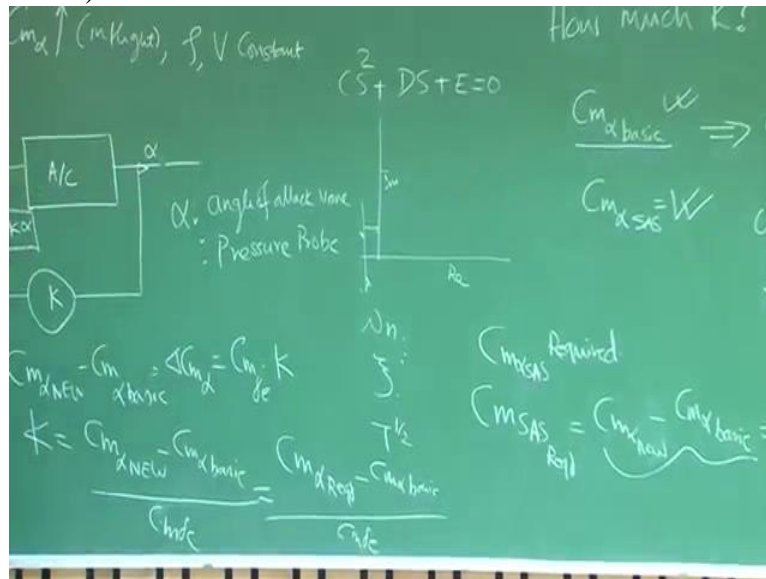 Cmα↑ (in flight), ρ, V Constant
How much K?
CS² + DS + E = 0
Cmα basic ⇒
A/C
α
Kα
K
α: angle of attack vane
: Pressure Probe
Im
Re
Cmα SAS =
CmαNEW - Cmα basic = ΔCmα = Cmδe K
K = CmαNEW - Cmα basic / Cmδe = CmαReqd - Cmα basic / Cmδe
ξ
T1/2
CmαSAS Required
CmSAS Reqd = Cmα new - Cmα basic =